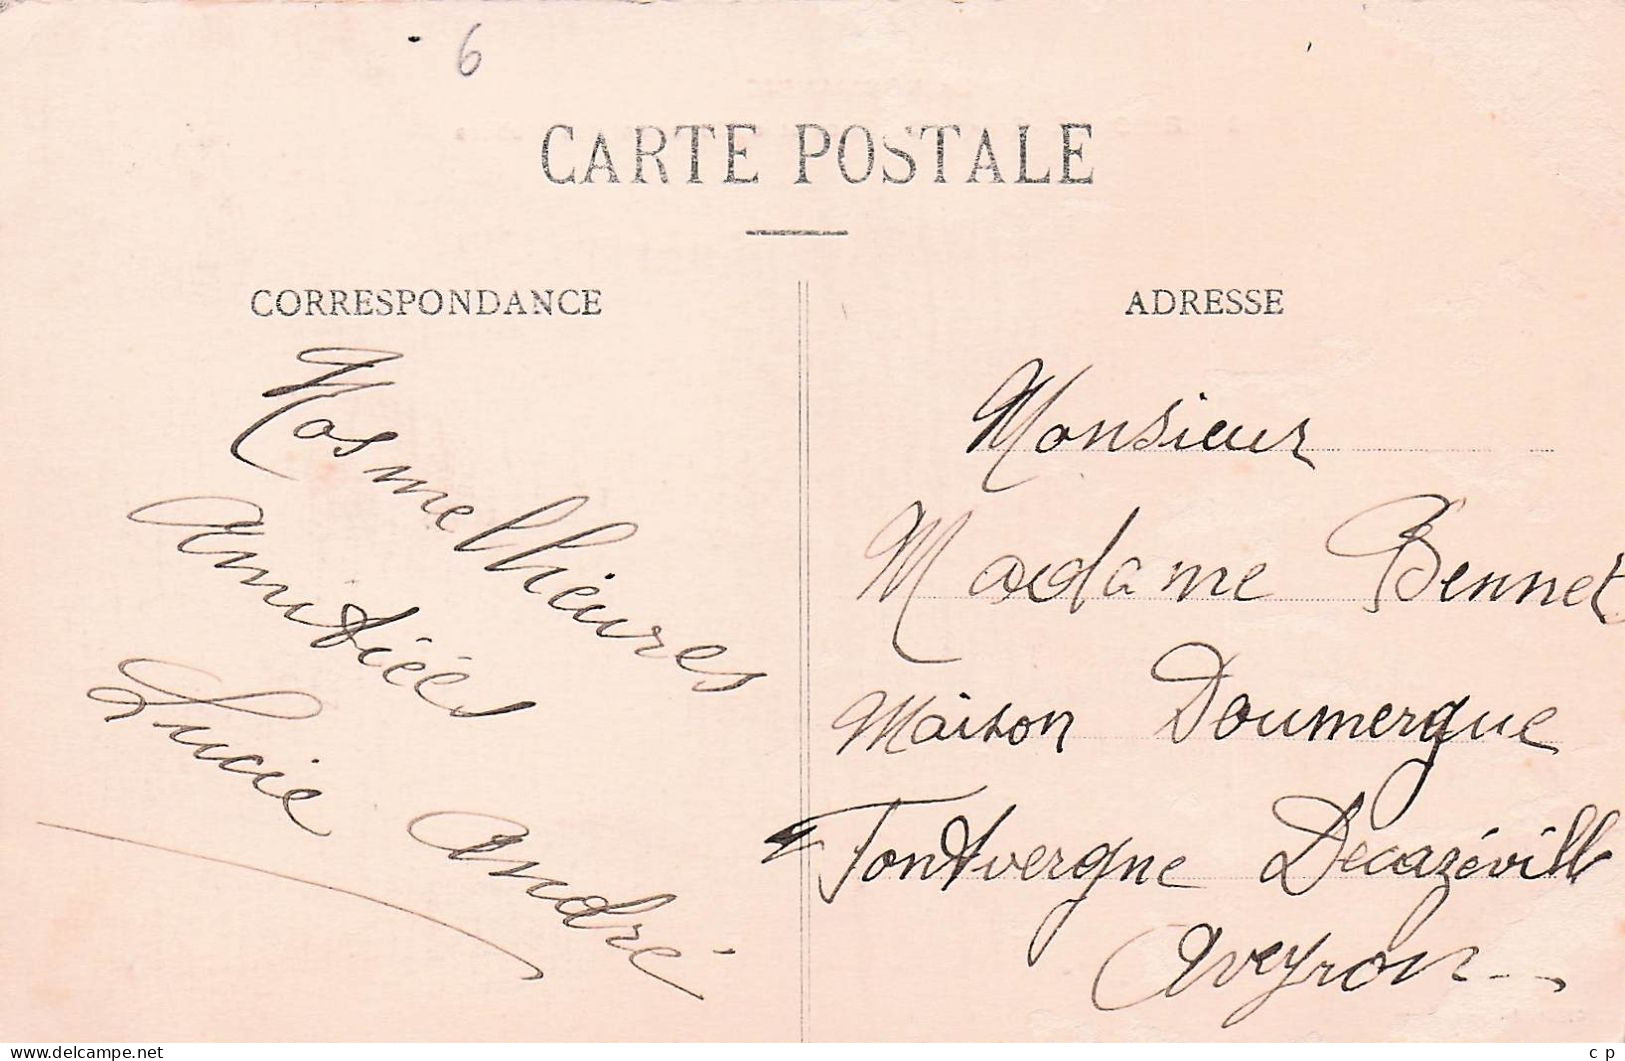 6
CARTE POSTALE
CORRESPONDANCE
Nos melhieures
Amitiées
Lucie André
ADRESSE
Monsieur
Madame Bennet
Maison Doumergue
Fontvergne Decazévill
Aveyron
delcampe.net
c p